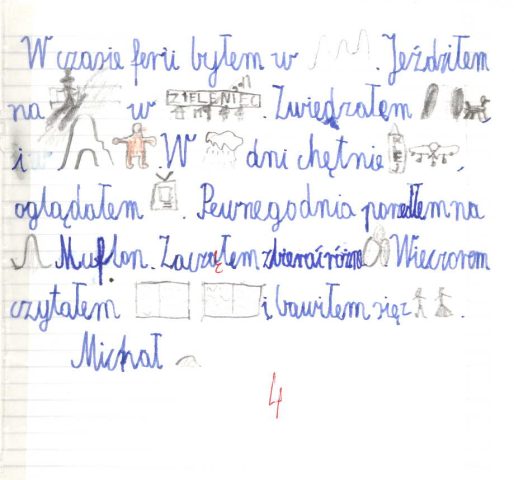 W czasie ferii byłem w . Jeździłem
na w ZIELENIEC. Zwiedzałem
i w . W dni chętnie ,
oglądałem . Pewnego dnia poszedłem na
Muflon. Zacząłem zbierać różne . Wieczorem
czytałem i bawiłem się z .
Michał
4